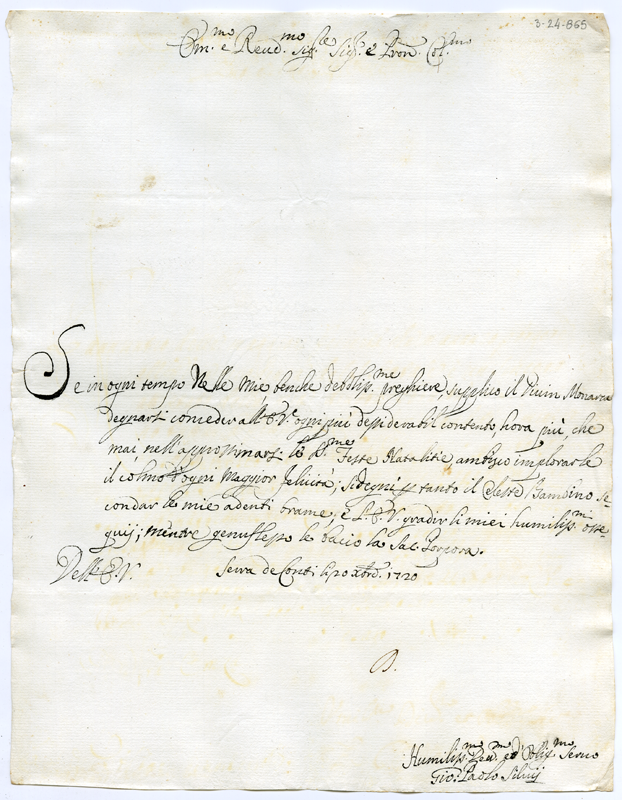 3-24-865
Em.mo e Reud.mo Sig.re Sig.r e Pron. Col.mo
Se in ogni tempo Nelle Mie, benche debboliss.me preghiere, supplico il Diuin Monarca
degnarsi conceder all' E.V. ogni più dessiderabil contento hora più, che
mai, nell'approssimarsi le S.me Feste Natalitie ambisco implorarle
il colmo d'ogni Maggior felicità; si degni p tanto il Celeste Bambino se-
condar le mie adenti brame, e L'E.V. gradir li miei humiliss.mi osse-
quij; mentre genuflesso le bacio la Sac. Porpora.
Dell' E.V. Serra de Conti li 20 xbre. 1720
Humiliss.mo Deu.mo ed Oblig.mo Seruo
Gio: Paolo Siluij